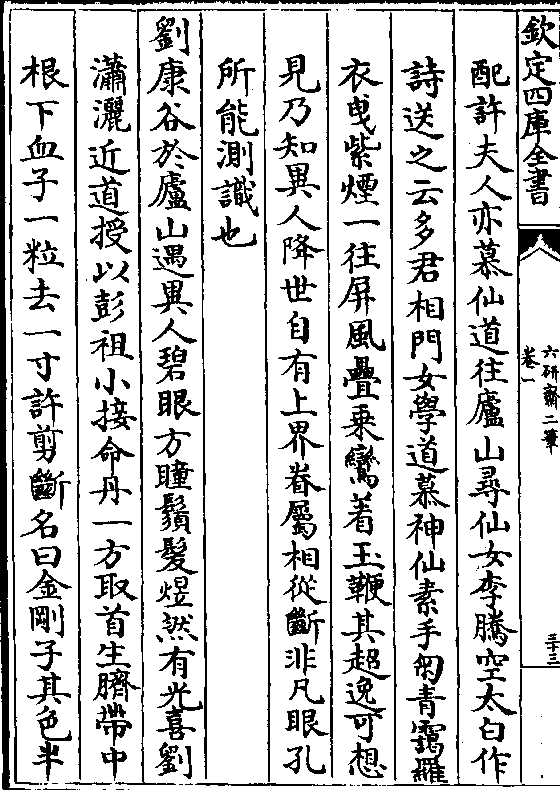 欽定四庫全書
六研齋二筆
卷一
三十三
配許夫人亦慕仙道往廬山尋仙女李騰空太白作
詩送之云多君相門女學道慕神仙素手匊青靄羅
衣曳紫煙一往屏風疊乘鸞着玉鞭其超逸可想
見乃知異人降世自有上界眷屬相從斷非凡眼孔
所能測識也
劉康谷於廬山遇異人碧眼方瞳鬚髮煜然有光喜劉
瀟灑近道授以彭祖小接命丹一方取首生臍帶中
根下血子一粒去一寸許剪斷名曰金剛子其色半